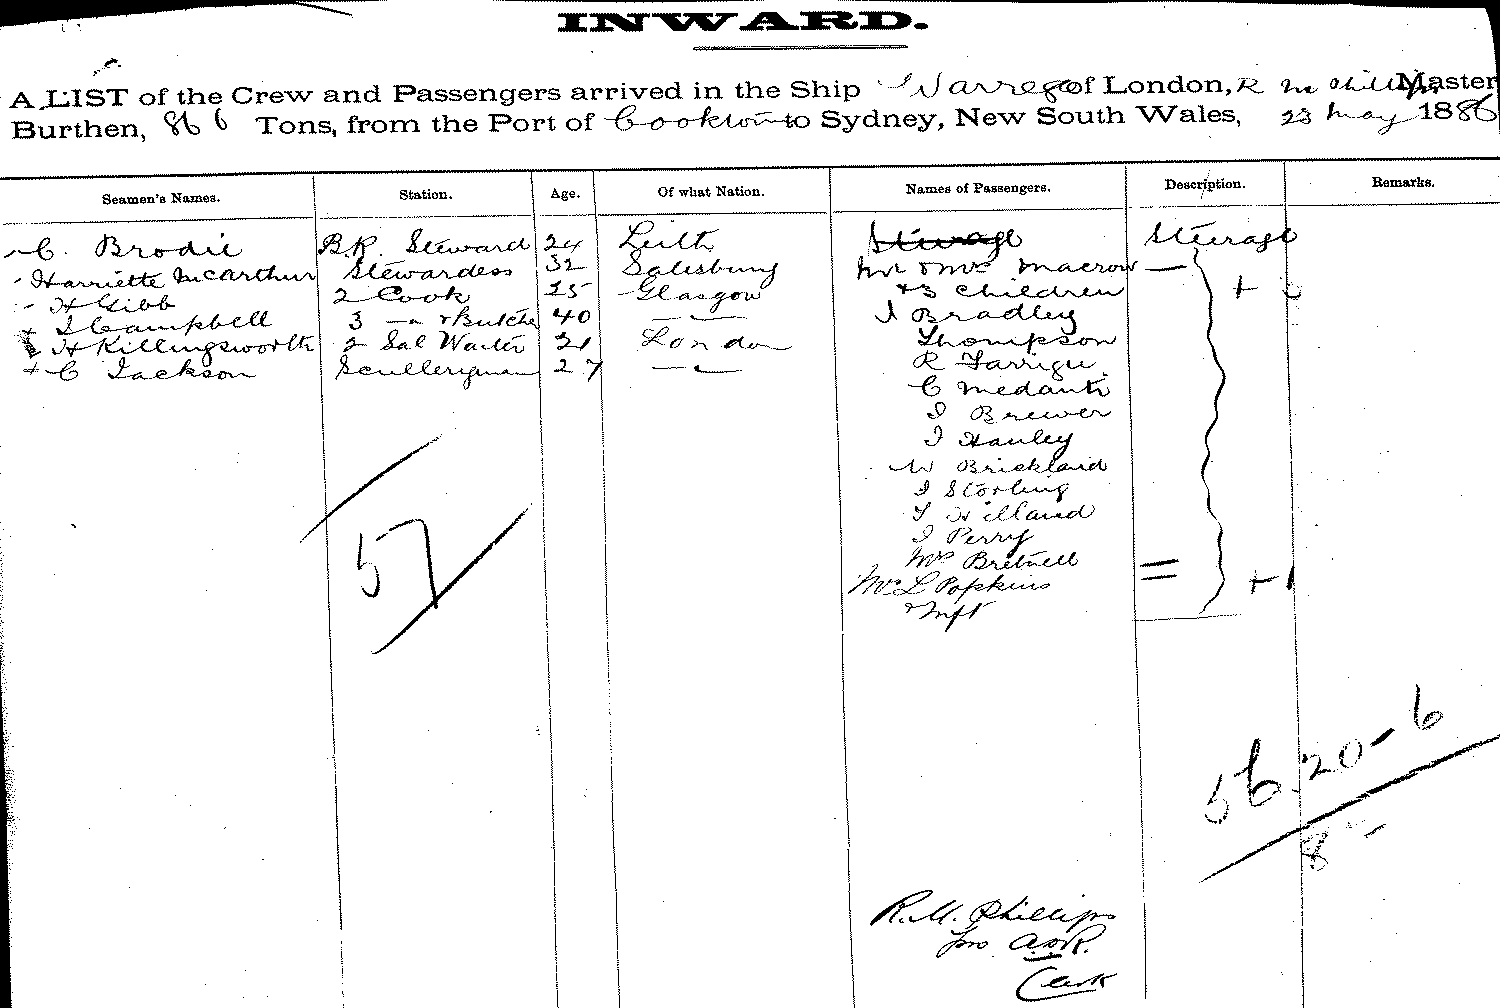 INWARD.
A LIST of the Crew and Passengers arrived in the Ship Warrego of London, R M Phillips Master
Burthen, 866 Tons, from the Port of Cooktown to Sydney, New South Wales, 23 May 1886
Seamen's Names. Station. Age. Of what Nation. Names of Passengers. Description. Remarks.
C. Brodie B.R. Steward 24 Leith Steerage Steerage
Harriette McArthur Stewardess 32 Salisbury Mr & Mrs Macrow —
H Gibb 2 Cook 25 Glasgow & 3 Children +
J Campbell 3 — & Butcher 40 — J Bradley
H Killingsworth 2 Sal Waiter 21 London Thompson
C Jackson Sculleryman 27 — R
C
J Brewer
J Hanley
W Brickland
J Storling
J Perry
Mrs Bretnell
Mrs L Popkins +1
& Inft
57
56.20-6
8
R.M. Phillips
Clerk